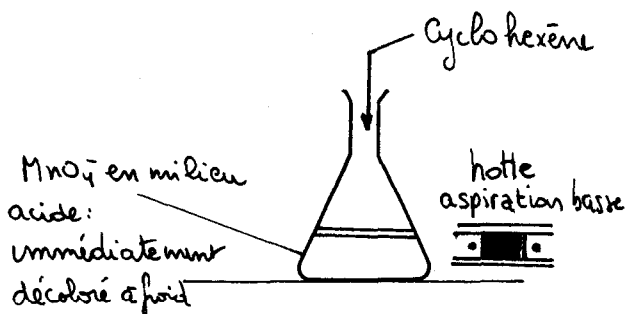 Cyclo hexène
MnO₄⁻ en milieu
acide :
immédiatement
décoloré à froid
hotte
aspiration basse